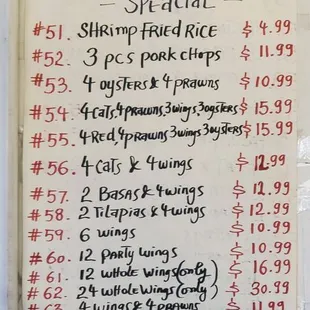 - SPECIAL -
#51. SHRIMP FRIED RICE $4.99
#52. 3 PCS PORK CHOPS $11.99
#53. 4 OYSTERS & 4 PRAWNS $10.99
#54. 4 CATS, 4 PRAWNS, 3 WINGS, 3 OYSTERS $15.99
#55. 4 RED, 4 PRAWNS 3 WINGS 3 OYSTERS $15.99
#56. 4 CATS & 4 WINGS $12.99
#57. 2 BASAS & 4 WINGS $12.99
#58. 2 TILAPIAS & 4 WINGS $12.99
#59. 6 WINGS $10.99
#60. 12 PARTY WINGS $10.99
#61. 12 WHOLE WINGS (ONLY) $16.99
#62. 24 WHOLE WINGS (ONLY) $30.99
#63. 4 WINGS & 4 PRAWNS $11.99